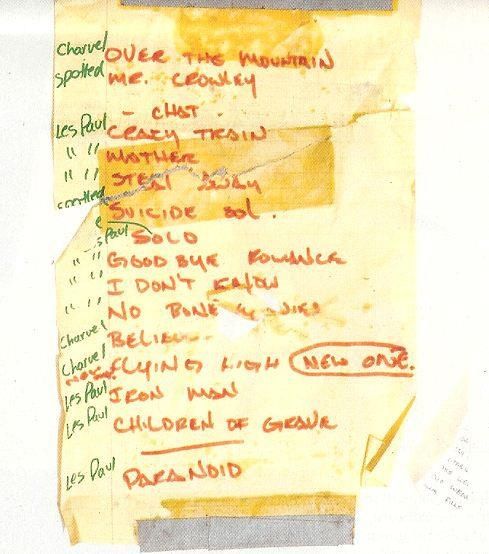 Charvel OVER THE MOUNTAIN
spotted MR. CROWLEY
- CHAT -
Les Paul CRAZY TRAIN
" " MOTHER
" " STEAL AWAY
SUICIDE SOL.
Paul SOLO
" " GOODBYE ROMANCE
" " I DON'T KNOW
" " NO BONE MOVIES
Charvel BELIEV
Charvel FLYING HIGH NEW ONE.
Les Paul IRON MAN
Les Paul CHILDREN OF GRAVE
Les Paul PARANOID